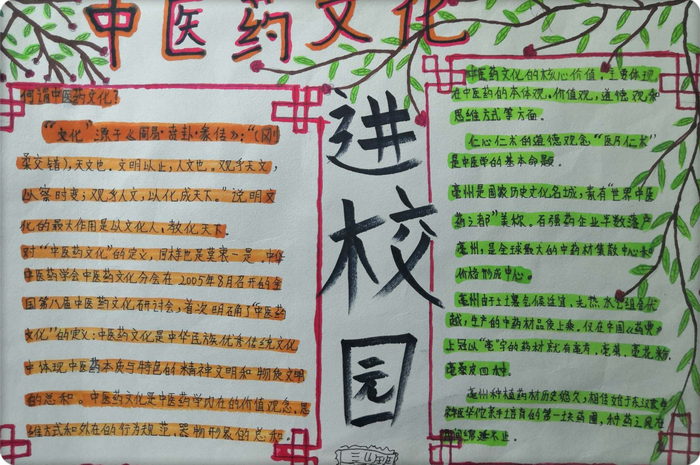 中医药文化
进校园
何谓中医药文化?
"文化"源于《周易·贲卦·彖传》:"(刚
柔交错),天文也。文明以止,人文也。观乎天文,
以察时变;观乎人文,以化成天下。"说明文
化的最大作用是以文化人、教化天下.
对"中医药文化"的定义,同样也是莫衷一是.中华
中医药学会中医药文化分会在2005年8月召开的全
国第八届中医药文化研讨会,首次明确了"中医药
文化"的定义:中医药文化是中华民族优秀传统文化
中体现中医药本质与特色的精神文明和物质文明
的总和。中医药文化是中医药学内在的价值观念、思
维方式和外在的行为规范、器物形象的总和.
中医药文化的核心价值,主要体现
在中医药的本体观,价值观,道德观和
思维方式等方面.
仁心仁术的道德观念"医乃仁术"
是中医学的基本命题.
亳州是国家历史文化名城,素有"世界中医
药之都"美称.百强药企业半数落户
亳州,是全球最大的中药材集散中心和
价格形成中心。
亳州由于土壤气候适宜、光热水它组合优
越,生产的中药材品质上乘,仅在中国《药典》
上冠以"亳"字的药材就有亳芍、亳菊、亳花粉、
亳桑皮四大种.
亳州种植药材历史悠久,相传始于东汉末年
神医华佗亲手培育的第一块药圃,种药之风在
民间绵延不止.